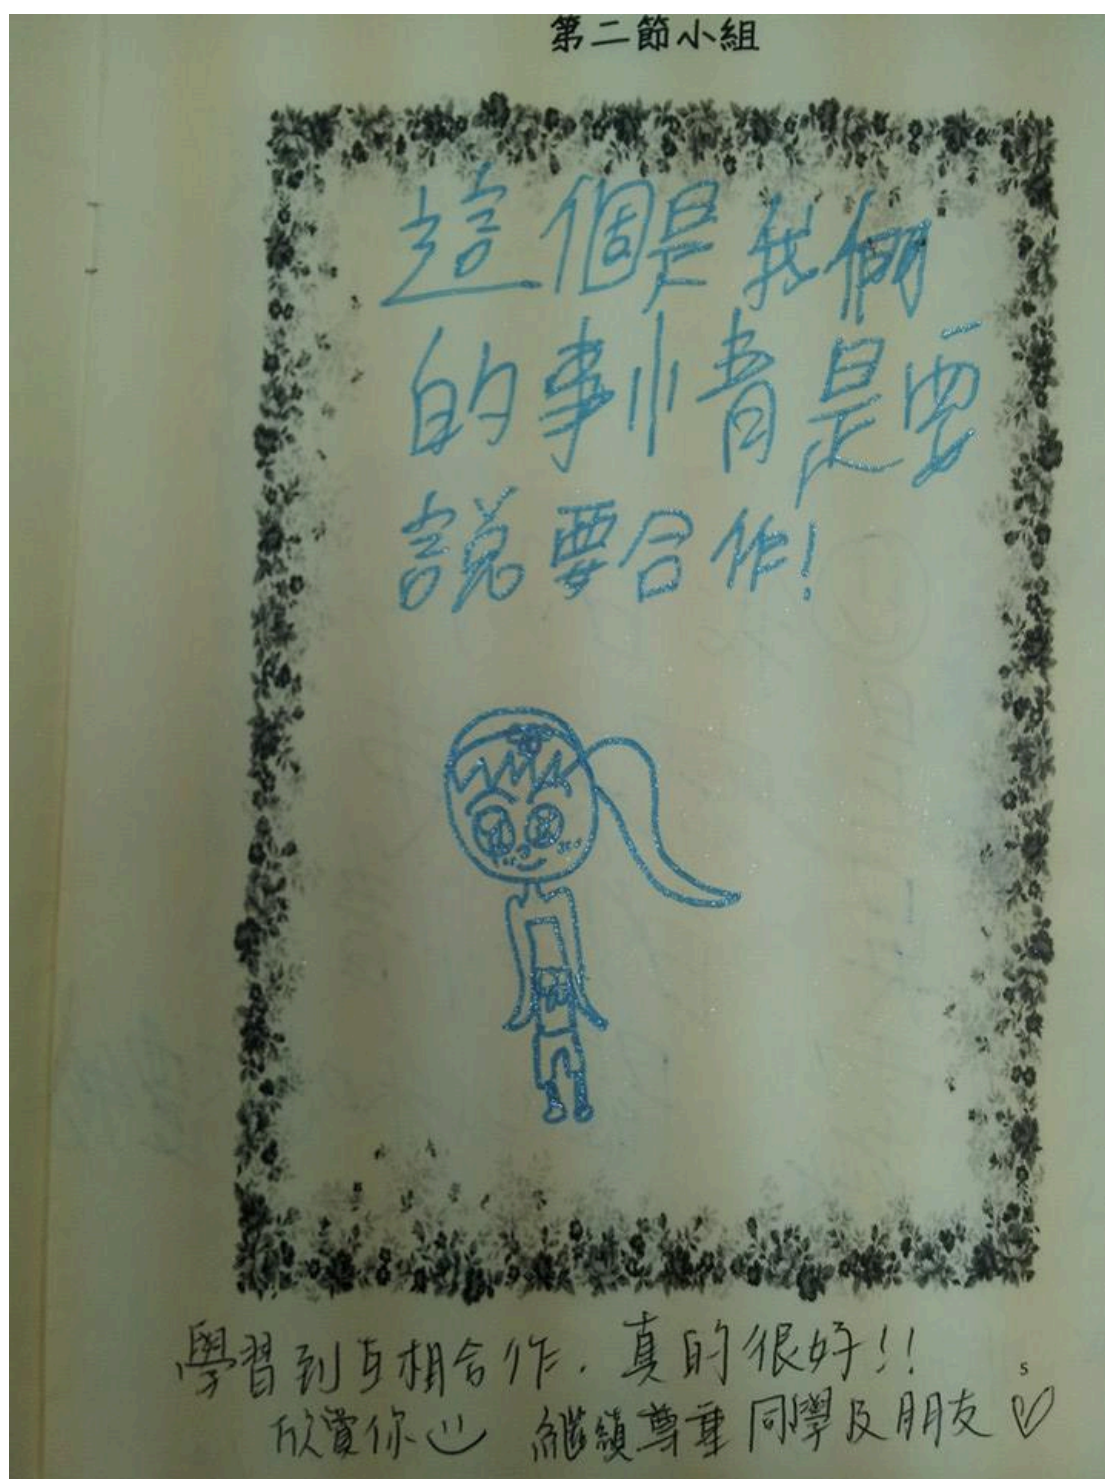 第二節小組
這個是我們
的事情是要
說要合作!
學習到互相合作. 真的很好!!
欣賞你 繼續尊重同學及朋友♡
5